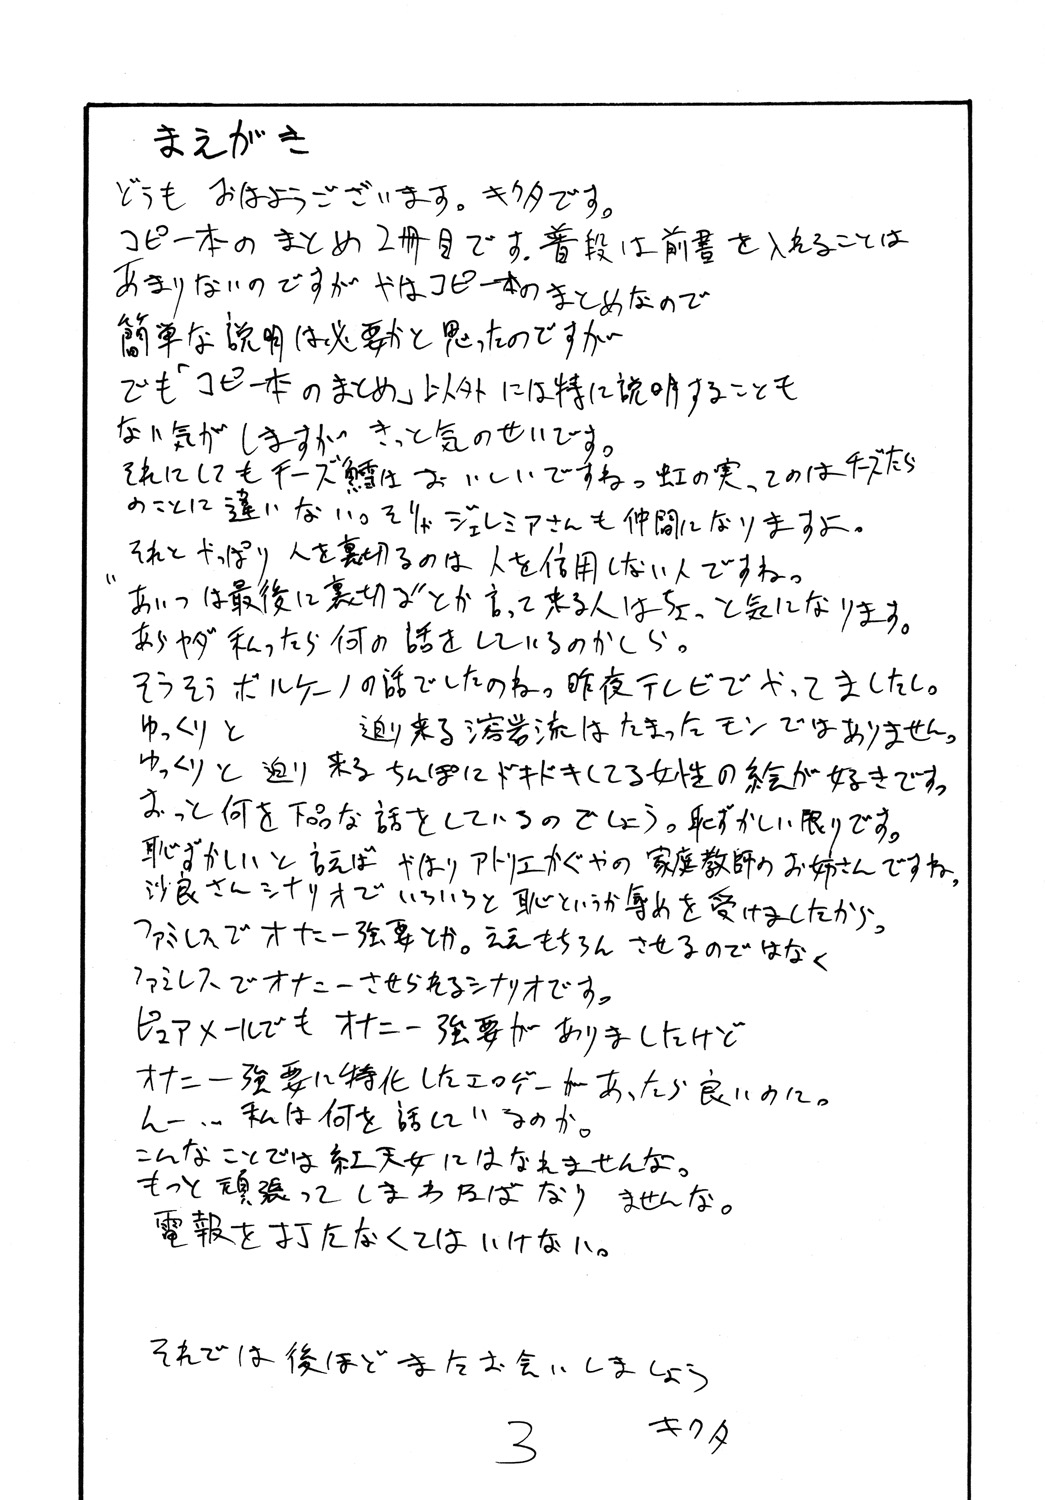 まえがき
どうも おはようございます。キクタです。
コピー本の まとめ 2冊目です。普段は前書を入れることは
あまりないのですが やはコピー本のまとめなので
簡単な説明は必要かと思ったのですが
でも「コピー本のまとめ」以外には特に説明することも
ない気がしますが きっと気のせいです。
それにしてもチーズ鱈はおいしいですね。虹の実ってのはチーズたら
のことに違いない。そりゃジェレミアさんも仲間になりますよ。
それとやっぱり人を裏切るのは人を信用しない人ですね。
"あいつは最後に裏切る"とか言って来る人はちょっと気になります。
あらヤダ私ったら何の話をしているのかしら。
そうそうボルケーノの話でしたのね。昨夜テレビでやってましたし。
ゆっくりと 迫り来る溶岩流はたまったモンではありません。
ゆっくりと 迫り来るちんぽにドキドキしてる女性の絵が好きです。
おっと何を下品な話をしているのでしょう。恥ずかしい限りです。
恥ずかしいと言えば やはりアトリエかぐやの家庭教師のお姉さんですね。
沙良さんシナリオでいろいろと恥というか辱めを受けましたから。
ファミレスでオナニー強要とか。ええもちろん させるのではなく
ファミレスでオナニーさせられるシナリオです。
ピュアメールでも オナニー強要がありましたけど
オナニー強要に特化したエロゲーがあったら良いのに。
んー… 私は何を話しているのか。
こんなことでは紅天女にはなれませんな。
もっと頑張って しまわねばなり ませんな。
電報を打たなくてはいけない。
それでは後ほどまたお会いしましょう
キクタ
3